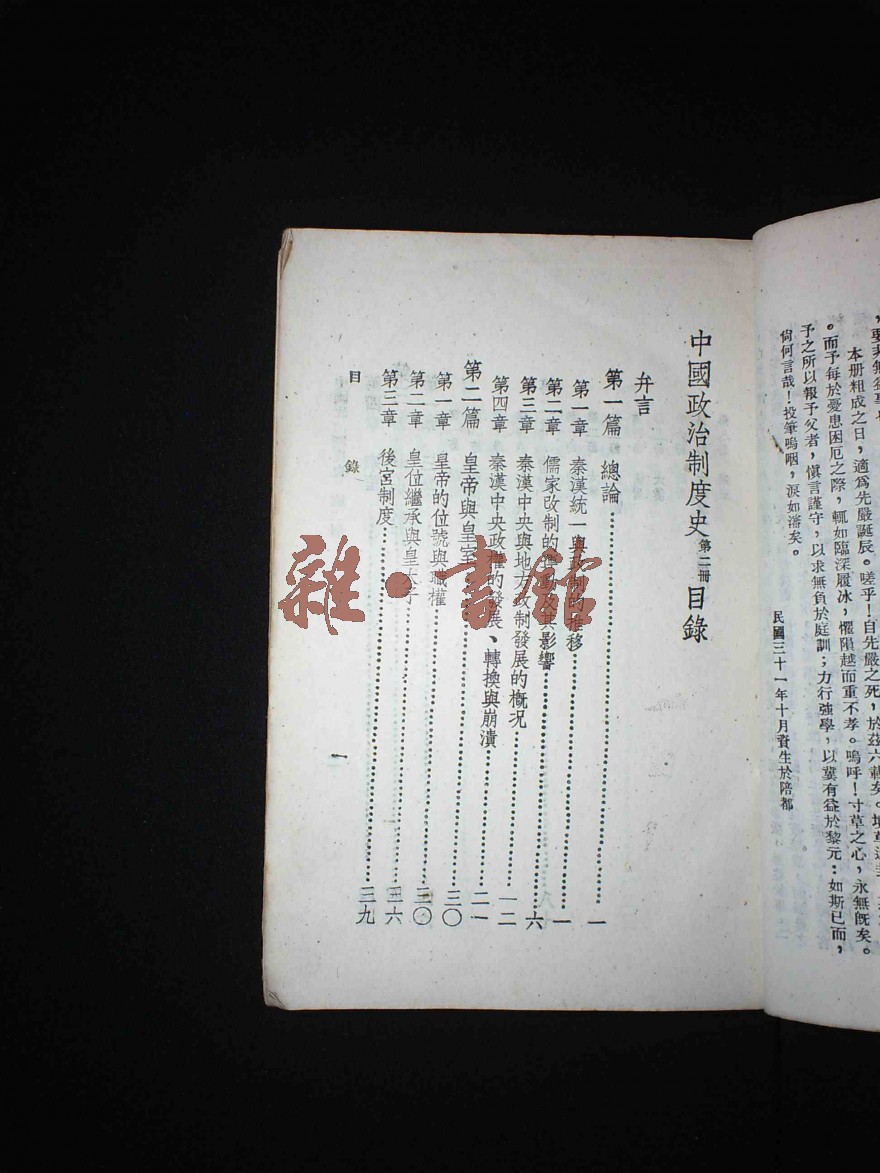 本册粗成之日，適爲先嚴誕辰。嗟乎！自先嚴之死，於茲六載矣。
。而予每於憂患困厄之際，輒如臨深履冰，懼隕越而重不孝。嗚呼！寸草之心，永無旣矣。
予之所以報予父者，愼言謹守，以求無負於庭訓；力行強學，以冀有益於黎元：如斯已而，
尙何言哉！投筆嗚咽，淚如瀋矣。
民國三十一年十月資生於陪都
中國政治制度史第二冊目錄
弁言
第一篇 總論……一
第一章 秦漢統一與政制的推移……一
第二章 儒家改制的運動及其影響……六
第三章 秦漢中央與地方政制發展的概況……一二
第四章 秦漢中央政權的發展、轉換與崩潰……二一
第二篇 皇帝與皇室……三〇
第一章 皇帝的位號與職權……三〇
第二章 皇位繼承與皇太子……三六
第三章 後宮制度……三九
目錄
一
雜·書館